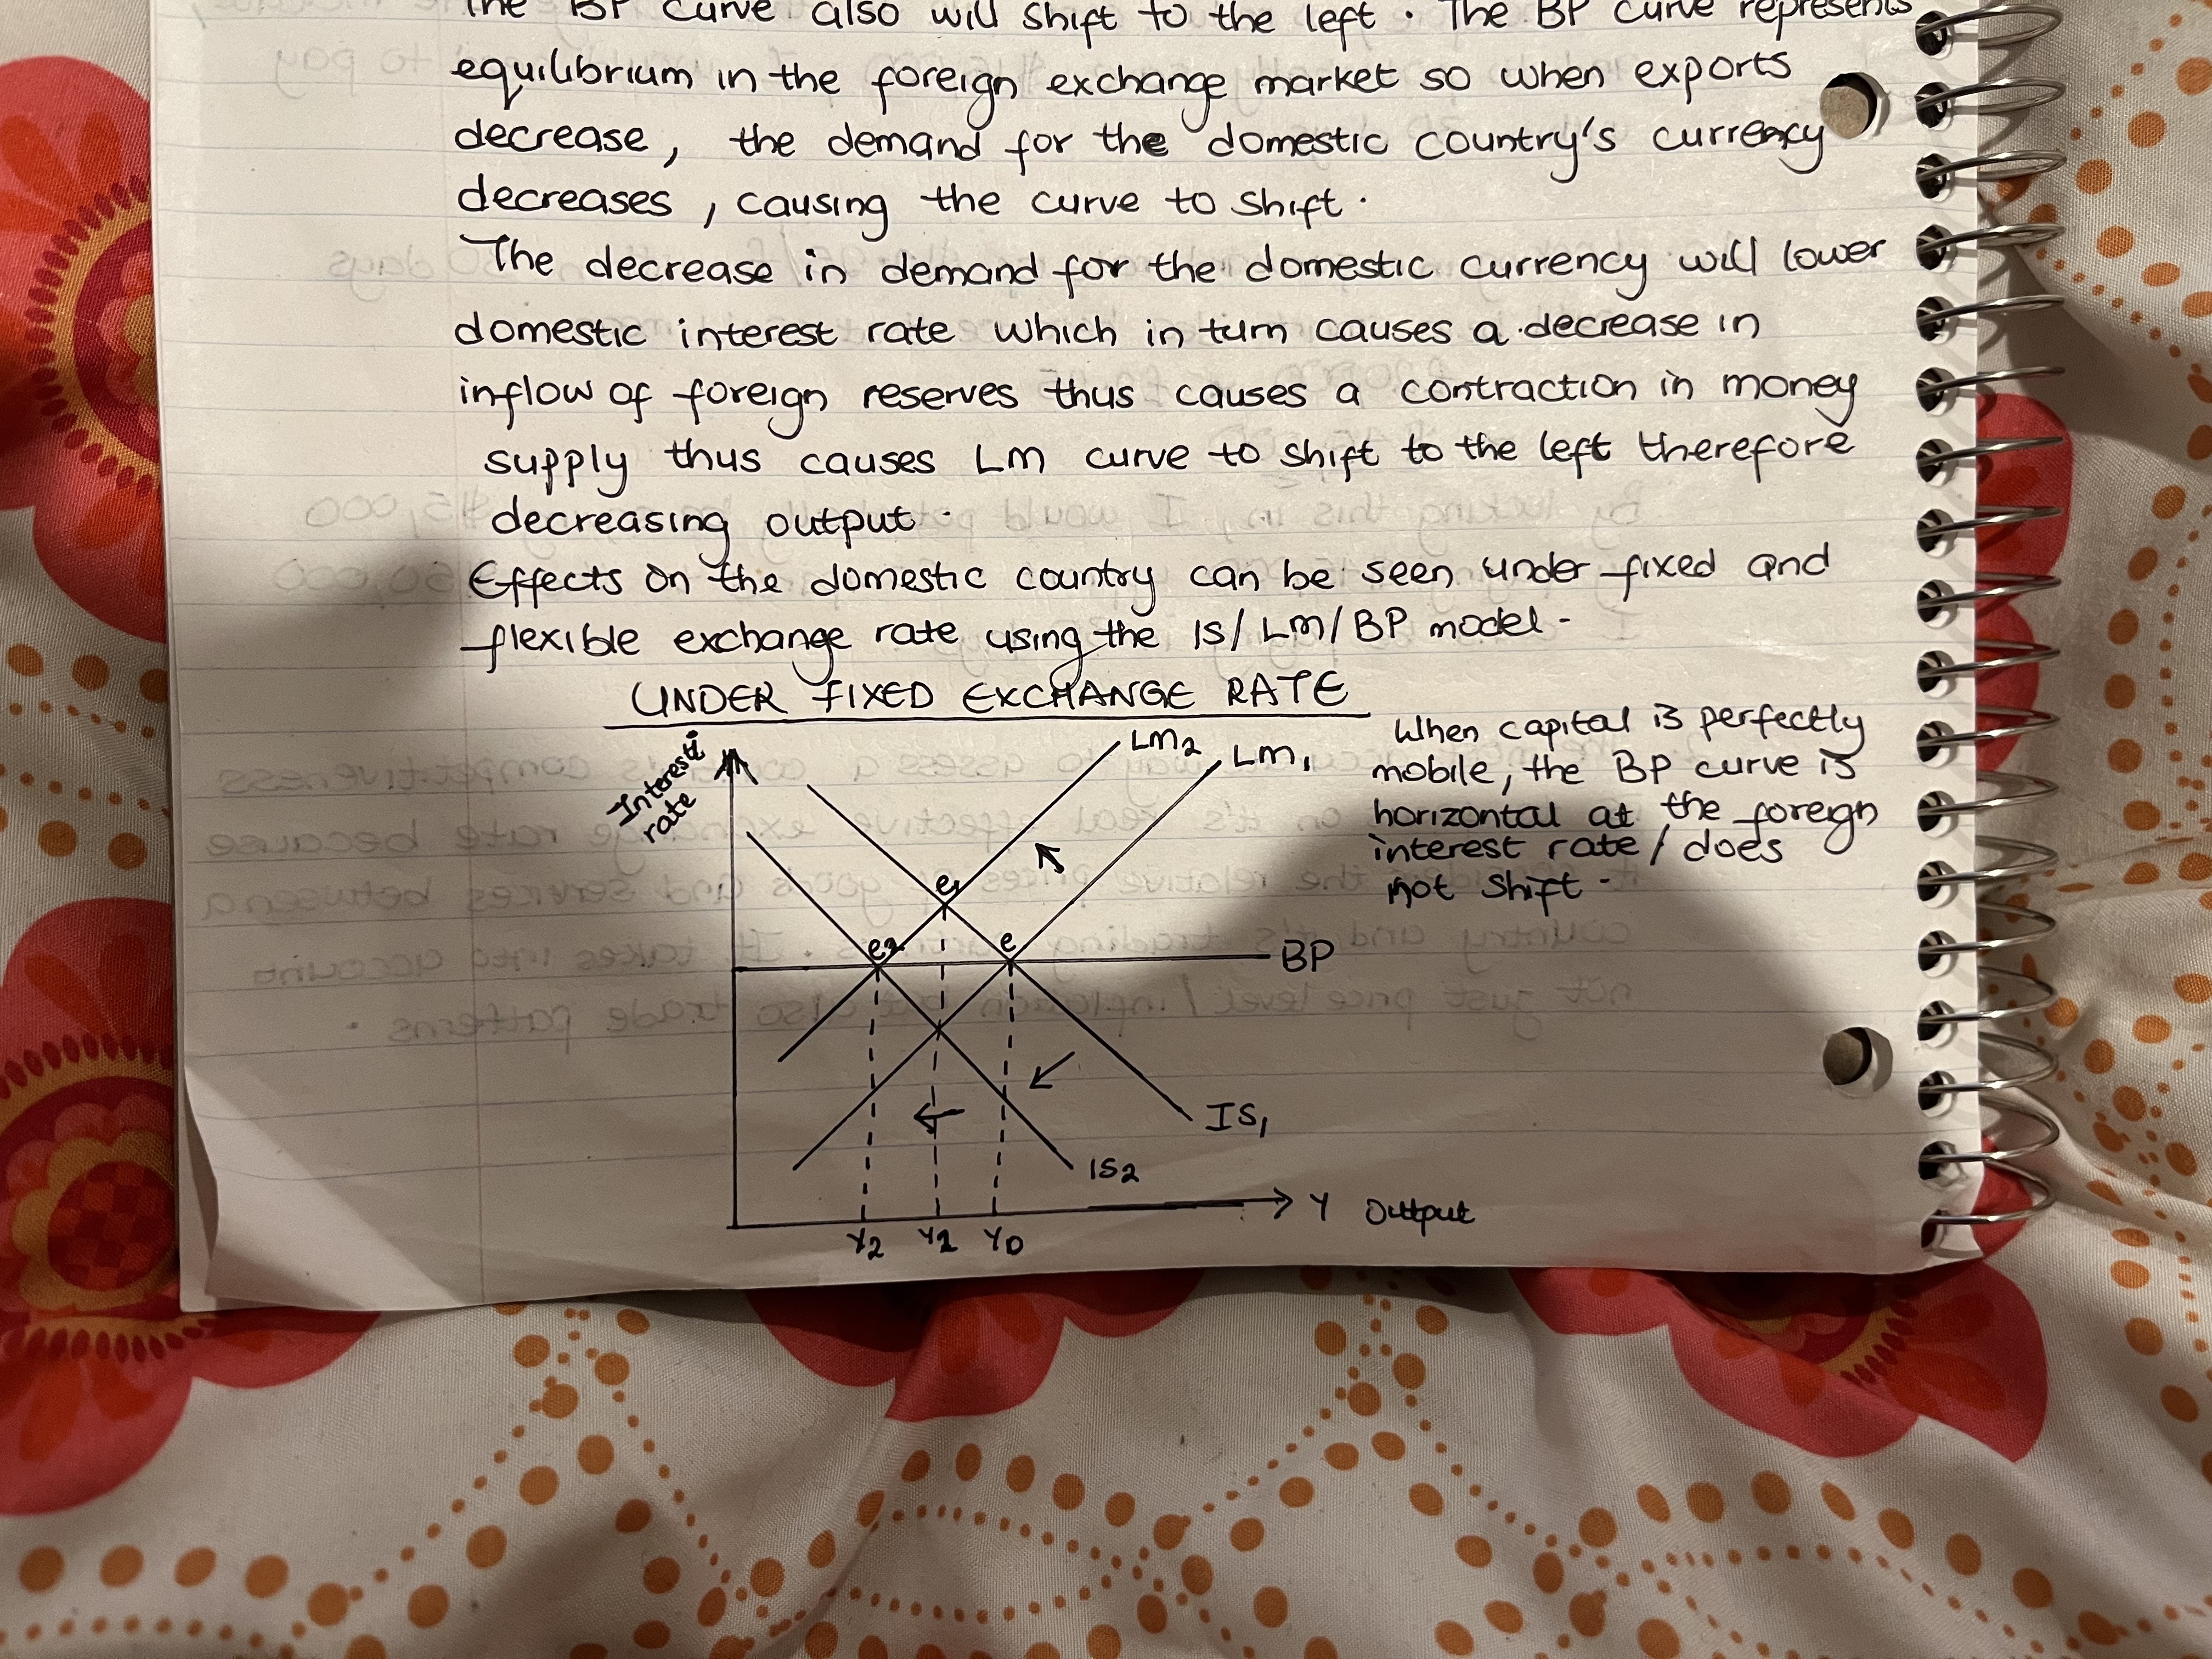 The BP curve also will shift to the left. The BP curve represents
equilibrium in the foreign exchange market so when exports
decrease, the demand for the domestic country's currency
decreases, causing the curve to shift.
The decrease in demand for the domestic currency will lower
domestic interest rate which in turn causes a decrease in
inflow of foreign reserves thus causes a contraction in money
supply thus causes LM curve to shift to the left therefore
decreasing output.
Effects on the domestic country can be seen under fixed and
flexible exchange rate using the IS/LM/BP model-
UNDER FIXED EXCHANGE RATE
When capital is perfectly
mobile, the BP curve is
horizontal at the foreign
interest rate/does
not shift-
Interest i
rate
LM2
LM1
e1
e2
e
BP
IS1
IS2
Y Output
Y2 Y1 YD